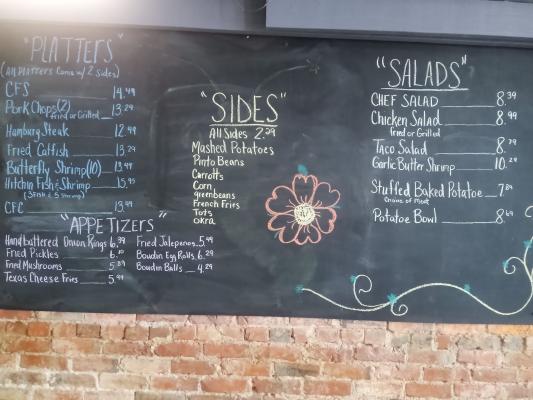 "PLATTERS"
(All Platters Come w/ 2 Sides)
CFS 14.49
Pork Chops (2) 13.29
fried or Grilled
Hamburg Steak 12.99
Fried Catfish 13.29
Butterfly Shrimp (10) 13.49
Hitchin Fish & Shrimp 15.95
CFC 13.99
"APPETIZERS"
Handbattered Onion Rings 6.99
Fried Pickles 6.10
Fried Mushrooms 5.89
Texas Cheese Fries 5.49
Fried Jalepenos 5.49
Boudin Egg Rolls 6.29
Boudin Balls 4.29
"SIDES"
All Sides 2.59
Mashed Potatoes
Pinto Beans
Carrotts
Corn
greenbeans
French Fries
Tots
OKRA
"SALADS"
CHEF SALAD 8.39
Chicken Salad 8.99
fried or Grilled
Taco Salad 8.79
Garlic Butter Shrimp 10.29
Stuffed Baked Potatoe 7.89
Choice of Meat
Potatoe Bowl 8.69